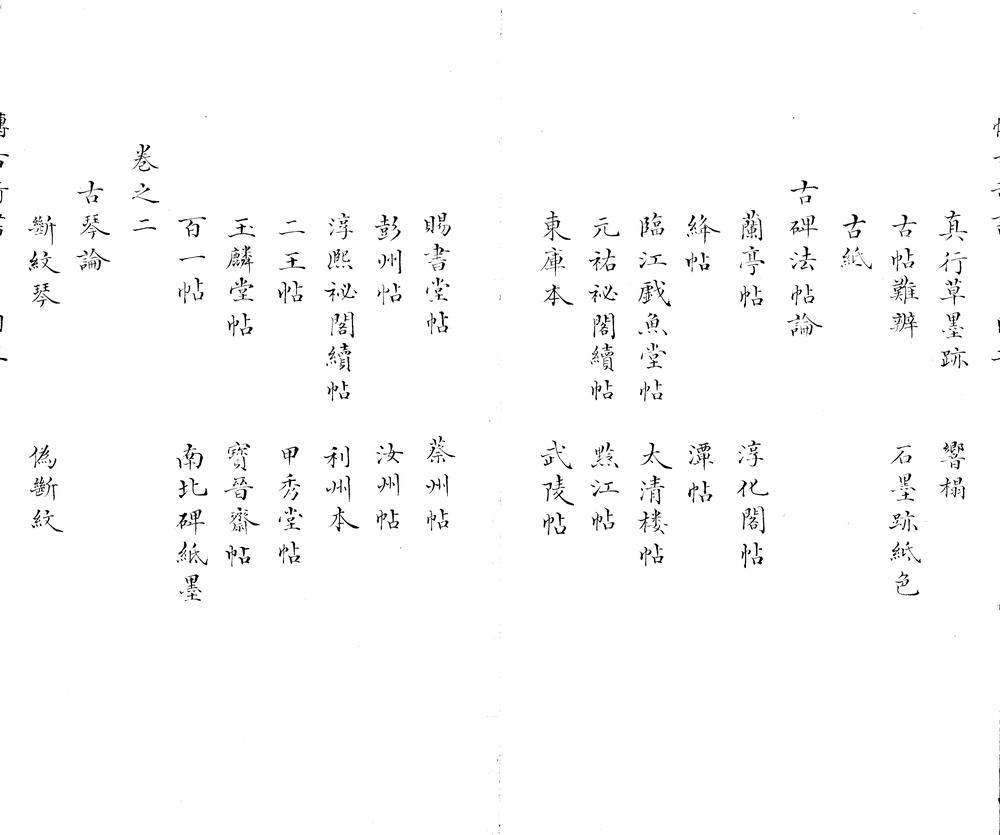 真行草墨跡　響榻
古帖難辨　石墨跡紙色
古紙
古碑法帖論
蘭亭帖　淳化閣帖
絳帖　潭帖
臨江戱魚堂帖　太清楼帖
元祐祕閣續帖　黔江帖
東庫本　武陵帖
賜書堂帖　蔡州帖
彭州帖　汝州帖
淳熈祕閣續帖　利州本
二王帖　甲秀堂帖
玉麟堂帖　寶晉齋帖
百一帖　南北碑紙墨
卷之二
古琴論
斷紋琴　偽斷紋